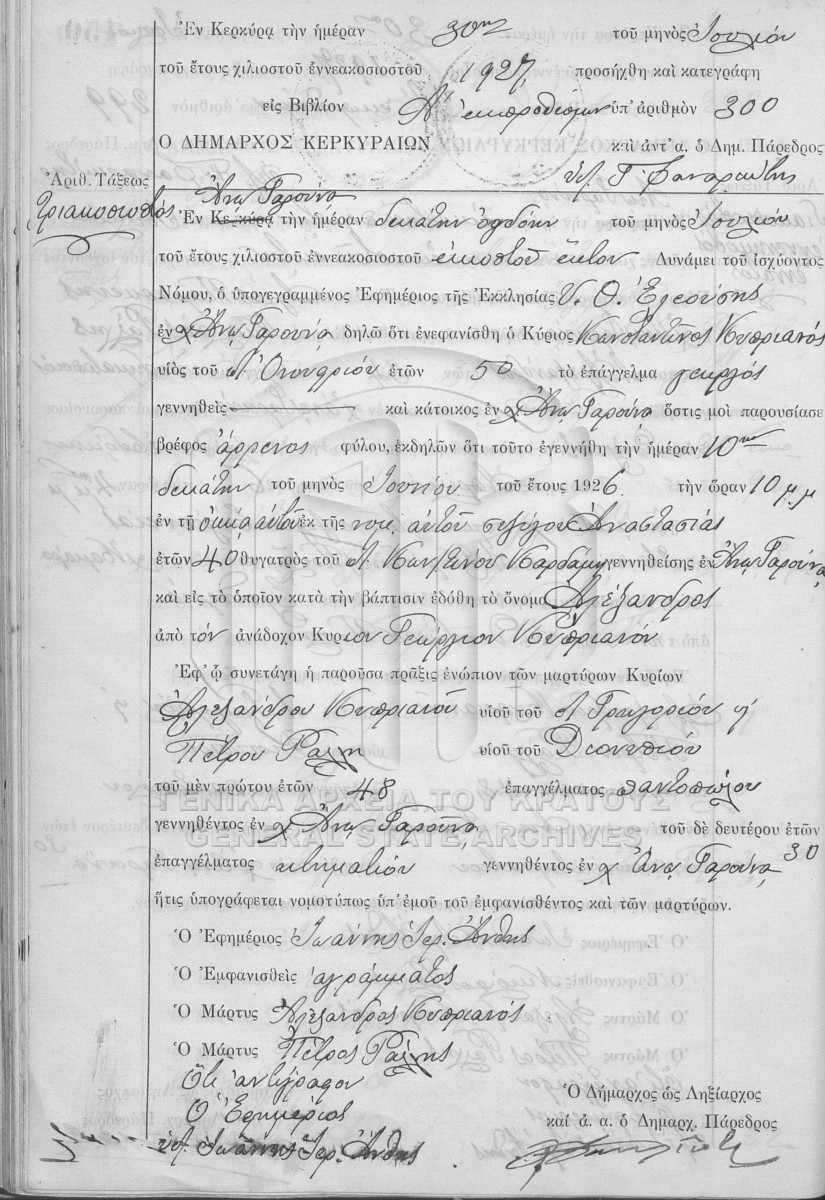 Ἐν Κερκύρᾳ τὴν ἡμέραν 30ην τοῦ μηνὸς Ἰουλίου
τοῦ ἔτους χιλιοστοῦ ἐννεακοσιοστοῦ 1927, προσήχθη καὶ κατεγράφη
εἰς Βιβλίον Α ἐκπροθέσμων ὑπ' ἀριθμὸν 300
Ο ΔΗΜΑΡΧΟΣ ΚΕΡΚΥΡΑΙΩΝ καὶ ἀντ' α. ὁ Δημ. Πάρεδρος
Γ. Φαναριώτης
Ἀριθ. Τάξεως
τριακοσιοστός
Ἄνω Γαρούνα
Ἐν Κερκύρᾳ τὴν ἡμέραν δεκάτην ὀγδόην τοῦ μηνὸς Ἰουλίου
τοῦ ἔτους χιλιοστοῦ ἐννεακοσιοστοῦ εἰκοστοῦ ἕκτου Δυνάμει τοῦ ἰσχύοντος
Νόμου, ὁ ὑπογεγραμμένος Ἐφημέριος τῆς Ἐκκλησίας Υ. Θ. Ἐλεούσης
ἐν χ Ἄνω Γαρούνα δηλῶ ὅτι ἐνεφανίσθη ὁ Κύριος Κωνσταντῖνος Κυπριανός
υἱὸς τοῦ Ὀνουφρίου ἐτῶν 50 τὸ ἐπάγγελμα γεωργός
γεννηθεὶς καὶ κάτοικος ἐν χ. Ἄνω Γαρούνα ὅστις μοὶ παρουσίασε
βρέφος ἄρρενος φύλου, ἐκδηλῶν ὅτι τοῦτο ἐγεννήθη τὴν ἡμέραν 10ην
δεκάτην τοῦ μηνὸς Ἰουνίου τοῦ ἔτους 1926 τὴν ὥραν 10 μ.μ
ἐν τῇ οἰκίᾳ αὐτοῦ ἐκ τῆς νομ. αὐτοῦ συζύγου Ἀναστασίας
ἐτῶν 40 θυγατρὸς τοῦ Κωνσταντίνου Βαρδάμη γεννηθείσης ἐν Ἄνω Γαρούνα
καὶ εἰς τὸ ὁποῖον κατὰ τὴν βάπτισιν ἐδόθη τὸ ὄνομα Ἀλέξανδρος
ἀπὸ τὸν ἀνάδοχον Κύριον Γεώργιον Κυπριανόν
Ἐφ' ᾧ συνετάγη ἡ παροῦσα πρᾶξις ἐνώπιον τῶν μαρτύρων Κυρίων
Ἀλεξάνδρου Κυπριανοῦ υἱοῦ τοῦ Γρηγορίου ἡ
Πέτρου Ράλλη υἱοῦ τοῦ Διονυσίου
τοῦ μὲν πρώτου ἐτῶν 48 ἐπαγγέλματος παντοπώλου
γεννηθέντος ἐν χ Ἄνω Γαρούνα, τοῦ δὲ δευτέρου ἐτῶν 30
ἐπαγγέλματος κτηματίου γεννηθέντος ἐν χ Ἄνω Γαρούνα
ἥτις ὑπογράφεται νομοτύπως ὑπ' ἐμοῦ τοῦ ἐμφανισθέντος καὶ τῶν μαρτύρων.
Ὁ Ἐφημέριος Ἰωάννης Ἱερ. Ἄνθης
Ὁ Ἐμφανισθεὶς ἀγράμματος
Ὁ Μάρτυς Ἀλέξανδρος Κυπριανός
Ὁ Μάρτυς Πέτρος Ράλλης
Ὅτι ἀντίγραφον
Ὁ Ἐφημέριος
Ἰωάννης Ἱερ. Ἄνθης
Ὁ Δήμαρχος ὡς Ληξίαρχος
καί ἀ. α. ὁ Δημαρχ. Πάρεδρος
ΓΕΝΙΚΑ ΑΡΧΕΙΑ ΤΟΥ ΚΡΑΤΟΥΣ
GENERAL STATE ARCHIVES